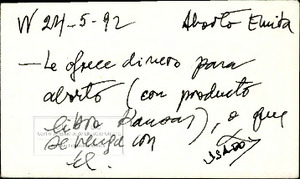 V 24-5-92 Aborto Emita
— Le ofrece dinero para
aborto (con producto
libro Planoas), o que
se venga con
él. USADO